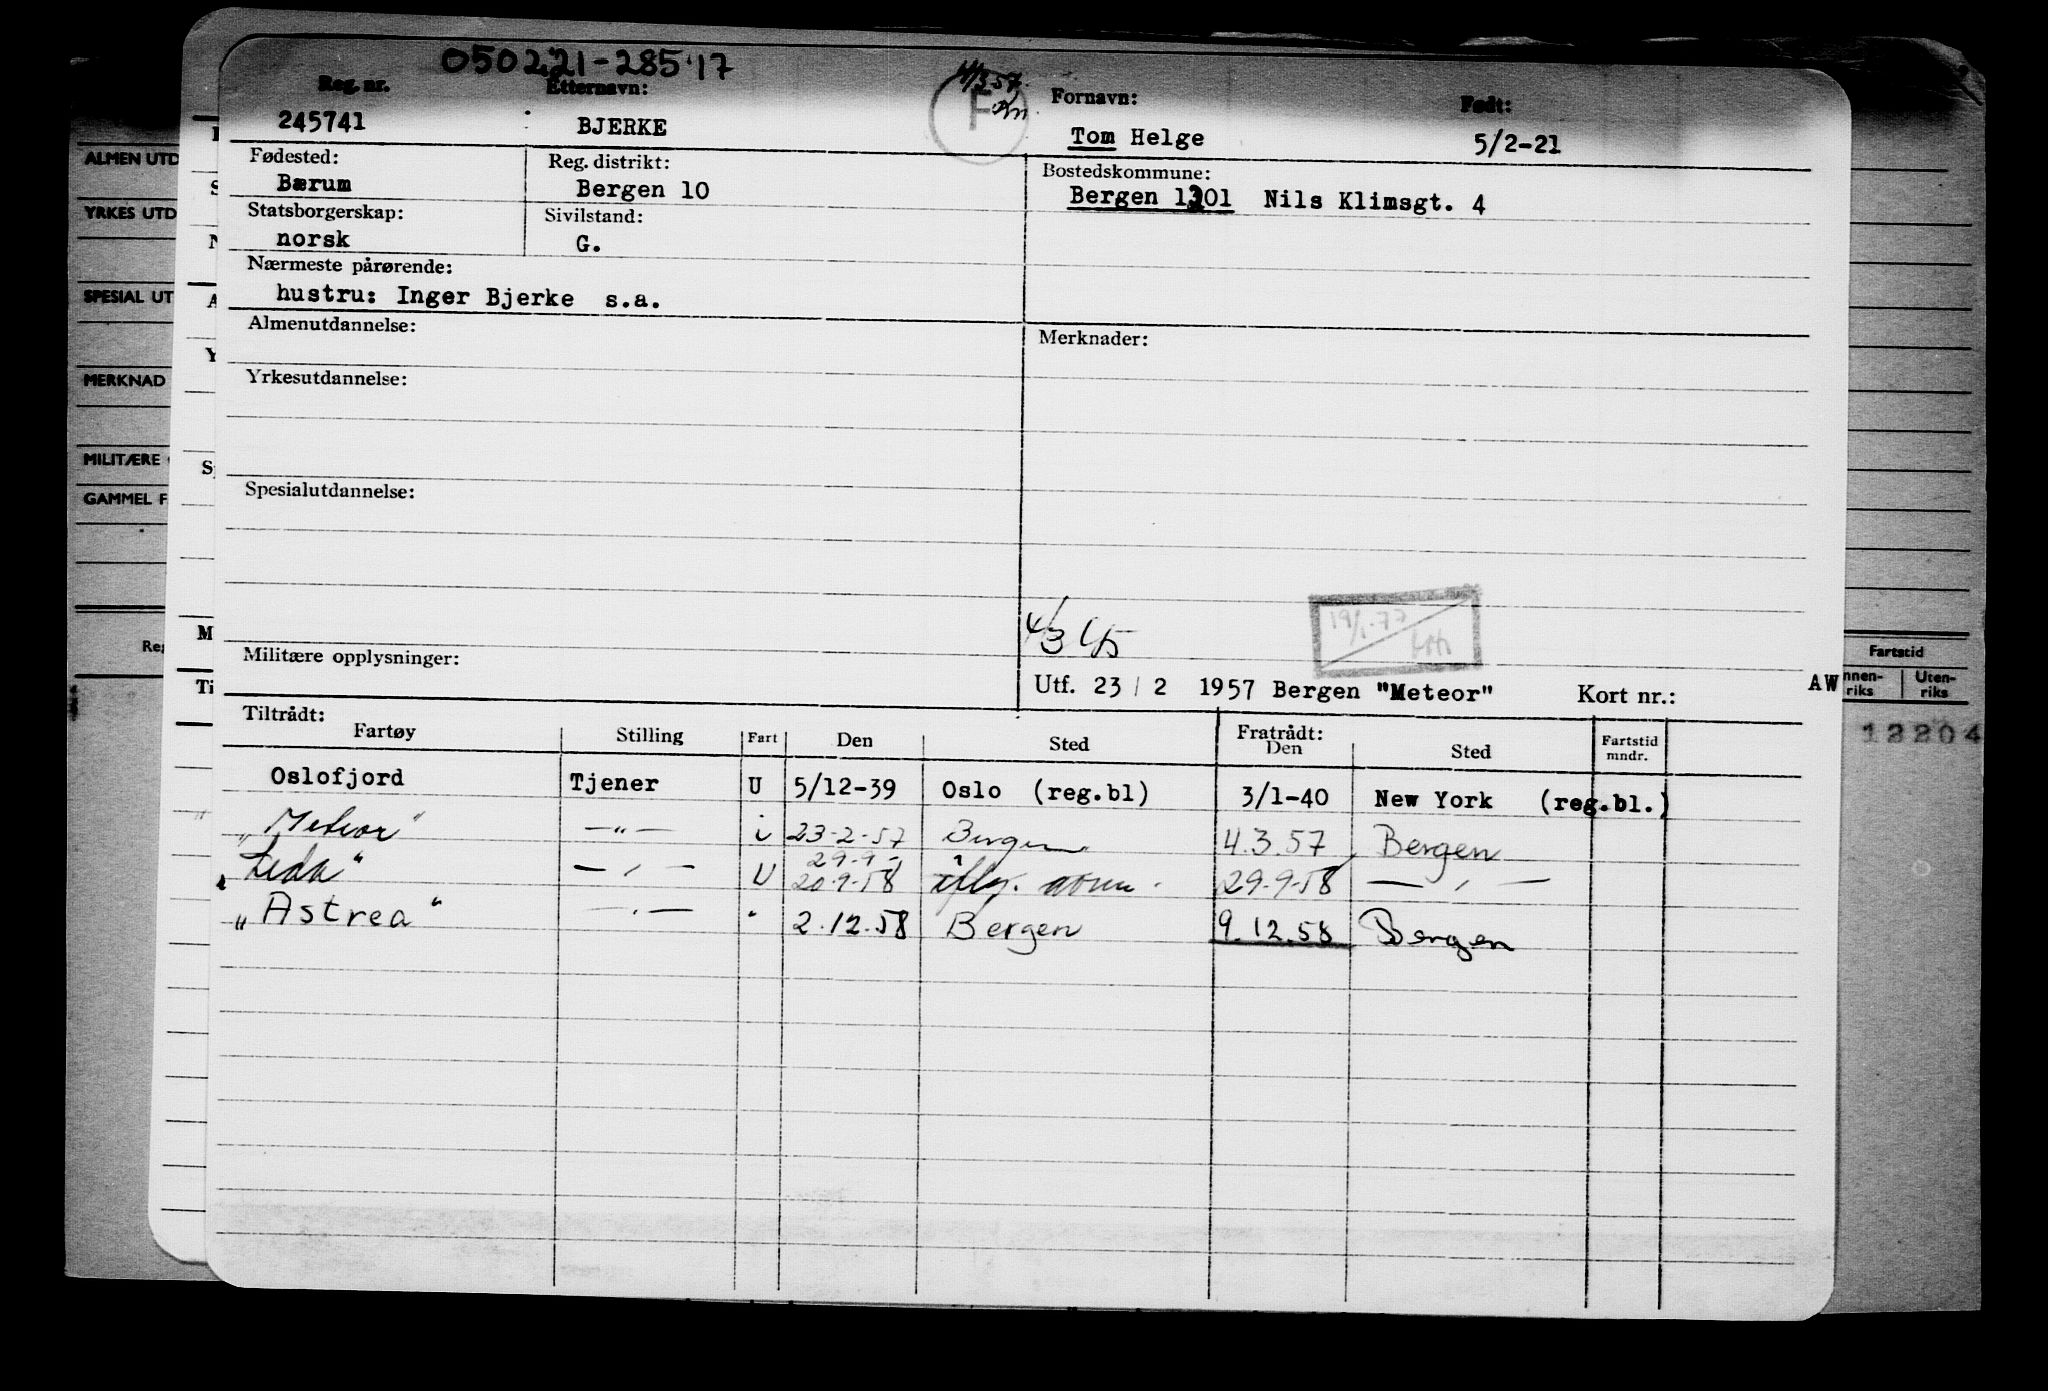 050221-28517
Reg. nr. Etternavn: 4/3 57. Fornavn: Født:
245741 BJERKE F Tom Helge 5/2-21
Fødested: Reg. distrikt: Bostedskommune:
Bærum Bergen 10 Bergen 1301 Nils Klimsgt. 4
Statsborgerskap: Sivilstand:
norsk G.
Nærmeste pårørende:
hustru: Inger Bjerke s.a.
Almenutdannelse: Merknader:
Yrkesutdannelse:
Spesialutdannelse:
4/3 19/1-77
Militære opplysninger:
Utf. 23 / 2 1957 Bergen "Meteor" Kort nr.:
AW
Tiltrådt: Fratrådt:
Fartøy Stilling Fart Den Sted Den Sted Fartstid mndr.
Oslofjord Tjener U 5/12-39 Oslo (reg.bl) 3/1-40 New York (reg.bl.)
"Meteor" —"— i 23-2-57 Bergen 4.3.57 Bergen
29-9-
"Leda" —"— U 20-9-58 iflg. 29-9-58 —"—
"Astrea" —"— " 2.12.58 Bergen 9.12.58 Bergen
ALMEN UTD
YRKES UTD
SPESIAL UT
MERKNAD
MILITÆRE
GAMMEL F
Reg
Ti
Fartstid
nnen-riks Uten-riks
12204